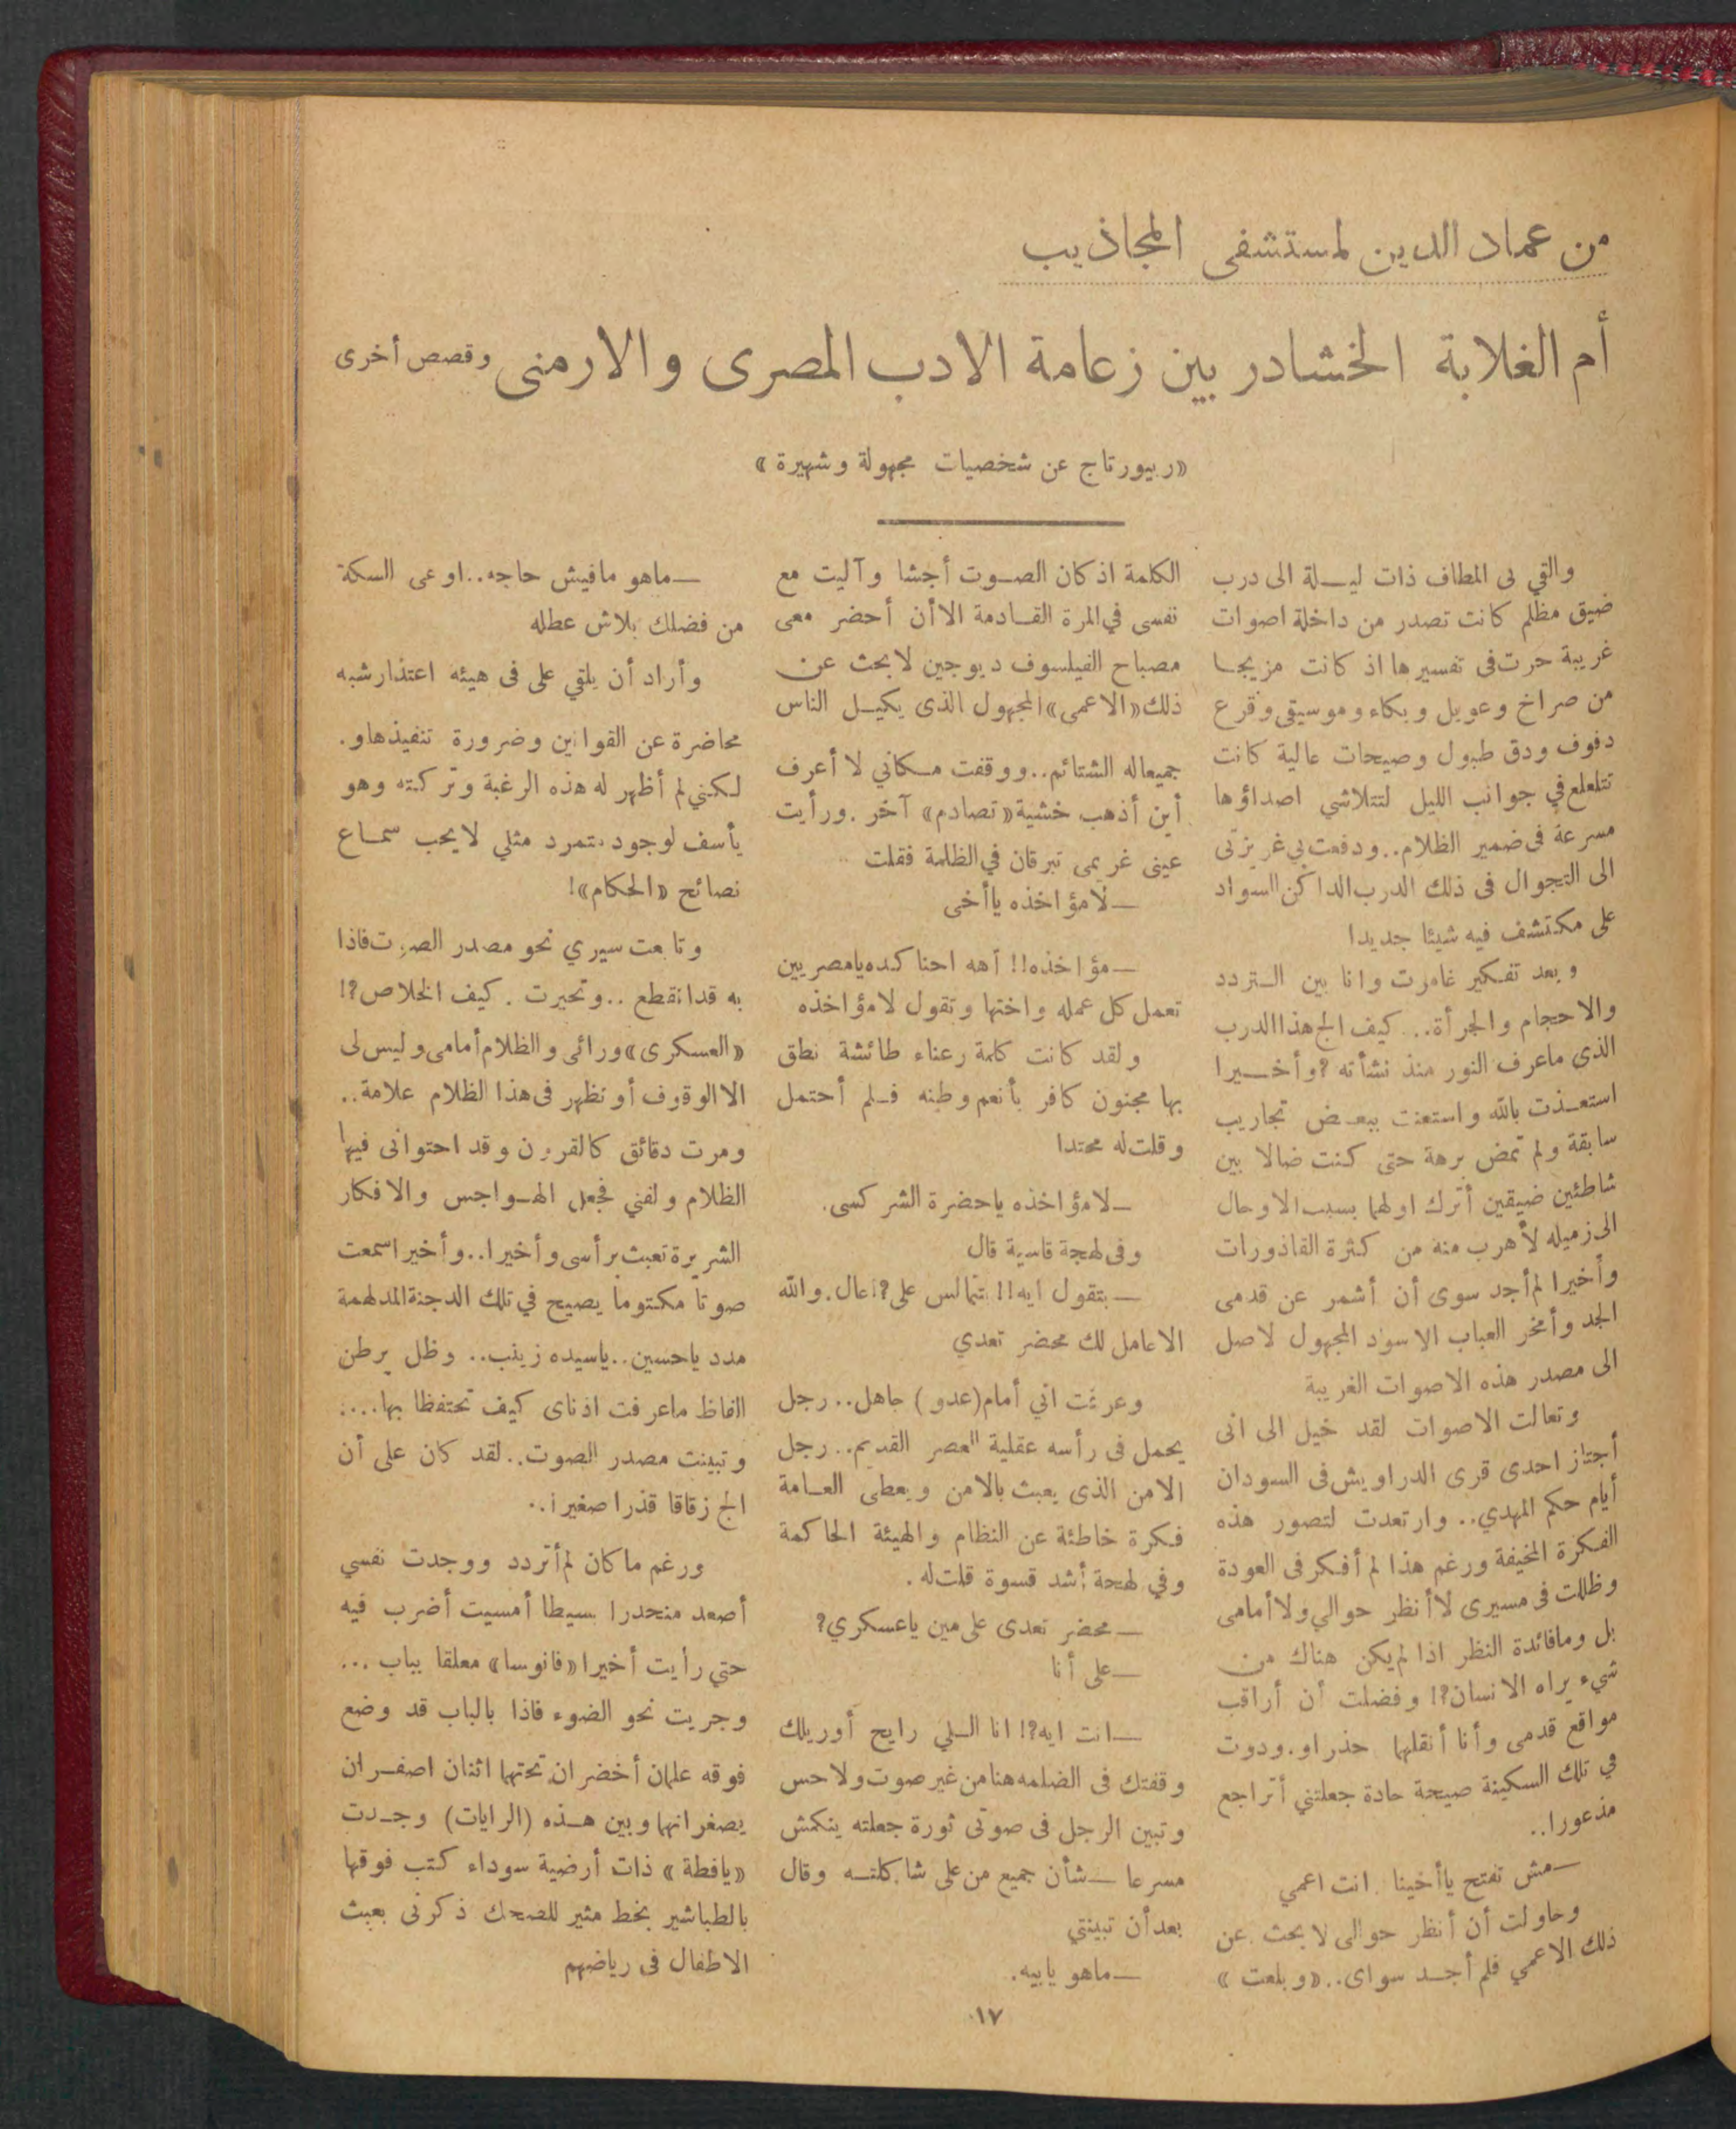 من عماد الدين لمستشفى المجاذيب
أم الغلابة الخشادر بين زعامة الادب المصرى والارمنى وقصص أخرى
«ريبورتاج عن شخصيات مجهولة وشهيرة»
والقي بى المطاف ذات ليـلة الى درب
ضيق مظلم كانت تصدر من داخلة اصوات
غريبة حرت فى تفسيرها اذ كانت مزيجا
من صراخ وعويل وبكاء وموسيقى وقرع
دفوف ودق طبول وصيحات عالية كانت
تتلعلع في جوانب الليل لتتلاشي اصداؤها
مسرعة فى ضمير الظلام.. ودفعت بي غريزتى
الى التجوال فى ذلك الدرب الداكن السواد
على مكتشف فيه شيئا جديدا
وبعد تفكير غامرت وانا بين التردد
والاحجام والجرأة.. كيف الج هذا الدرب
الذى ماعرف النور منذ نشأته ? وأخـيرا
استعـذت بالله واستعنت ببعـض تجاريب
سابقة ولم تمض برهة حتى كنت ضالا بين
شاطئين ضيقين أترك اولهما بسبب الاوحال
الى زميله لأهرب منه من كثرة القاذورات
وأخيرا لم أجد سوى أن أشمر عن قدمى
الجد وأمخر العباب الاسود المجهول لاصل
الى مصدر هذه الاصوات الغريبة
وتعالت الاصوات لقد خيل الى انى
أجتاز احدى قرى الدراويش فى السودان
أيام حكم المهدي.. وارتعدت لتصور هذه
الفكرة المخيفة ورغم هذا لم أفكر فى العودة
وظللت فى مسيرى لا أنظر حوالي ولا أمامى
بل وما فائدة النظر اذا لم يكن هناك من
شيء يراه الانسان ?! وفضلت أن أراقب
مواقع قدمى وأنا أنقلهما حذرا و.ودوت
في تلك السكينة صيحة حادة جعلتني أتراجع
مذعورا..
— مش تفتح يأأخينا . انت اعمي
وحاولت أن أنظر حوالى لابحث عن
ذلك الاعمي فلم أجـد سواى.. «وبلعت»
الكلمة اذ كان الصـوت أجشا وآليت مع
نفسى في المرة القـادمة الا أن أحضر معى
مصباح الفيلسوف ديوجين لابحث عن
ذلك «الاعمى» المجهول الذى يكيـل الناس
جميعا له الشتائم.. ووقفت مـكاني لا أعرف
أين أذهب خشية «تصادم» آخر . ورأيت
عينى غريمى تبرقان في الظلمة فقلت
— لامؤاخذه يا أخى
— مؤاخذه!! آهه احنا كده يامصريين
تعمل كل عمله واختها وتقول لامؤاخذه
ولقد كانت كلمة رعناء طائشة نطق
بها مجنون كافر بأنعم وطنه فـلم أحتمل
وقلت له محتدا
— لامؤاخذه ياحضرة الشركسى.
وفى لهجة قاسية قال
— بتقول ايه!! بتمالس على?! عال. والله
الاعامل لك محضر تعدي
وعرفت اني أمام (عدو) جاهل.. رجل
يحمل فى رأسه عقلية العصر القديم.. رجل
الامن الذى يعبث بالامن ويعطى العـامة
فكرة خاطئة عن النظام والهيئة الحاكمة
وفي لهجة أشد قسوة قلت له .
— محضر تعدى على مين ياعسكري?
— على أنا
— انت ايه?! انا الـلي رايح أوريلك
وقفتك فى الضلمه هنا من غير صوت ولاحس
وتبين الرجل فى صوتى ثورة جعلته ينكمش
مسرعا — شأن جميع من على شاكلتـه وقال
بعد أن تبينتي
— ماهو يابيه.
— ماهو مافيش حاجه.. اوعى السكة
من فضلك بلاش عطله
وأراد أن يلقي على فى هيئه اعتذار شبه
محاضرة عن القوانين وضرورة تنفيذها و.
لـكنني لم أظهر له هذه الرغبة وتركته وهو
يأسف لوجود متمرد مثلي لايحب سمـاع
نصائح «الحكام»!
وتابعت سيري نحو مصدر الصوت فاذا
به قد انقطع .. وتحيرت . كيف الخلاص ?!
«العسكرى» ورائى والظلام أمامى وليس لى
الا الوقوف أو تظهر فى هذا الظلام علامة..
ومرت دقائق كالقرون وقد احتوانى فيها
الظلام ولفني فجعل الهـواجس والافكار
الشريرة تعبث برأسى وأخيرا.. وأخيرا سمعت
صوتا مكتوما يصيح في تلك الدجنة المدلهمة
مدد ياحسين.. ياسيده زينب.. وظل يرطن
الفاظ ماعرفت اذناى كيف تحتفظا بها....
وتبينت مصدر الصوت.. لقد كان على أن
الج زقاقا قذرا صغيرا..
ورغم ماكان لم أتردد ووجدت نفسي
أصعد منحدرا بسيطا أمسيت أضرب فيه
حتي رأيت أخيرا «فانوسا» معلقا بباب ...
وجريت نحو الضوء فاذا بالباب قد وضع
فوقه علمان أخضران تحتهما اثنان اصفـران
يصغرانهما وبين هـذه (الرايات) وجـدت
«يافطة» ذات أرضية سوداء كتب فوقها
بالطباشير بخط مثير للضحك ذكرنى بعبث
الاطفال فى رياضهم
١٧